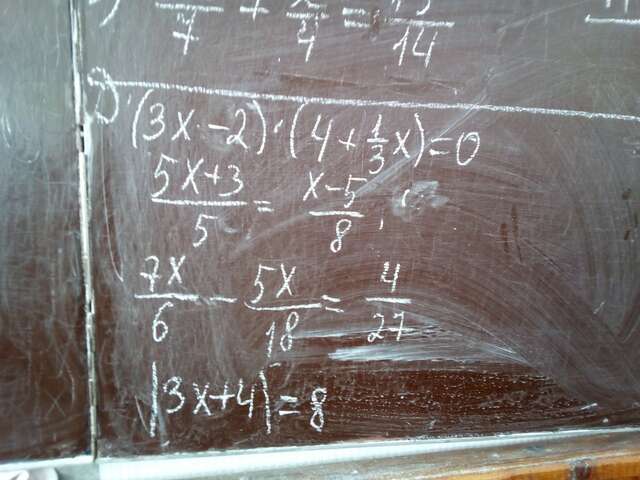 /7 + /4 = /14
2) (3x - 2) · (4 + 1/3 x) = 0
5x+3/5 = x-5/8 ;
7x/6 - 5x/18 = 4/27
|3x+4| = 8